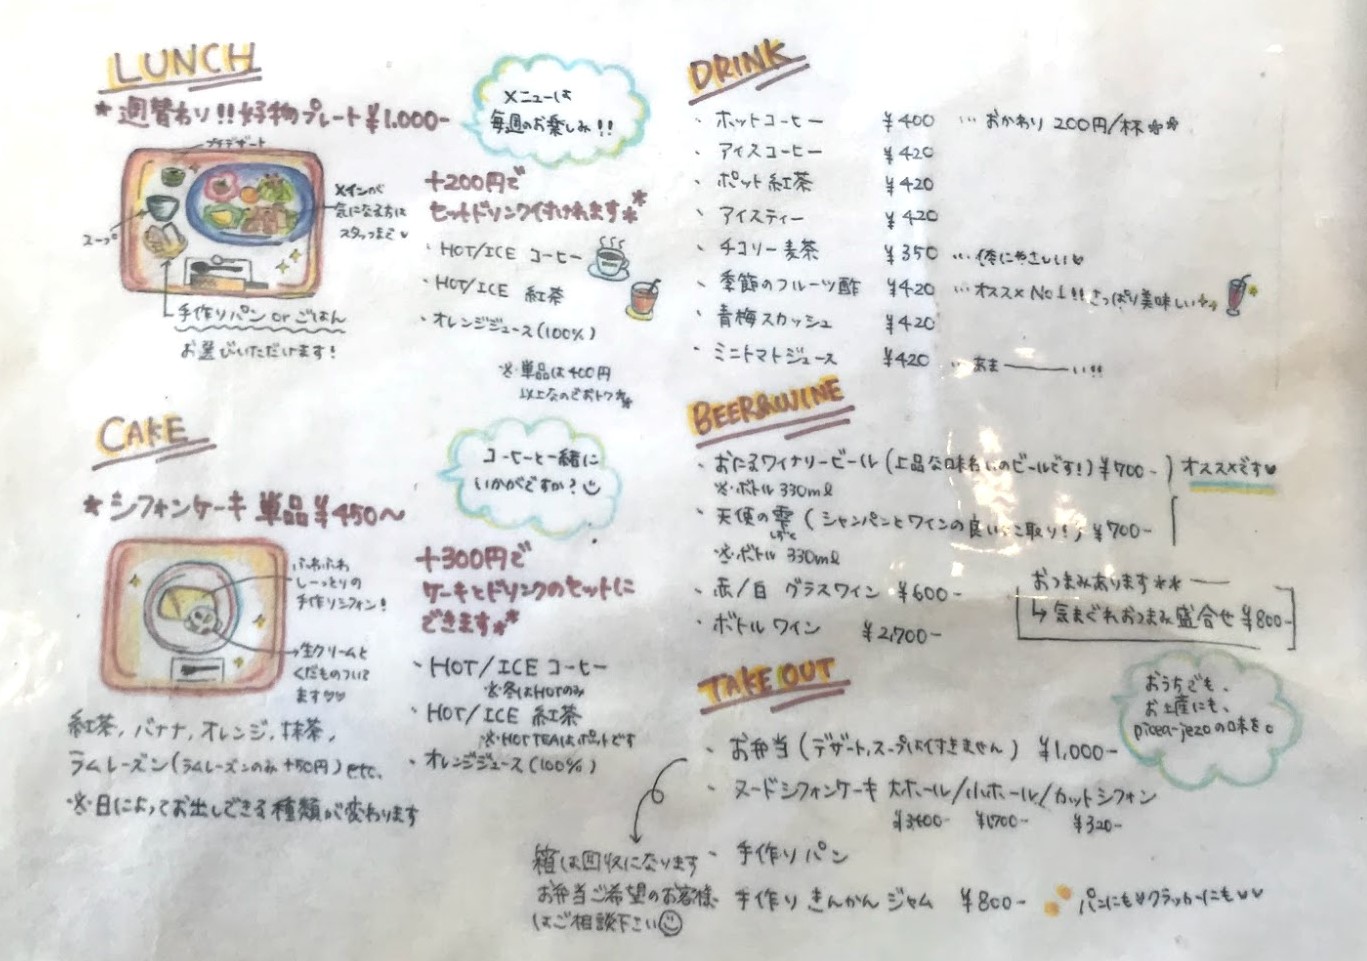 LUNCH
* 週替わり!!好物プレート¥1.000-
メニューは
毎週のお楽しみ!!
プチデザート
スープ
メインが
気になる方は
スタッフまで♥
手作りパン or ごはん
お選びいただけます!
+200円で
セットドリンク付けれます**
・HOT/ICE コーヒー
・HOT/ICE 紅茶
・オレンジジュース(100%)
※単品は400円
以上なのでおトク**
CAKE
* シフォンケーキ 単品¥450〜
コーヒーと一緒に
いかがですか?
ふわふわ
しーっとりの
手作りシフォン!
生クリームと
くだものついて
ます♡♡
紅茶, バナナ, オレンジ, 抹茶,
ラムレーズン(ラムレーズンのみ+50円)etc.
※日によってお出しできる種類が変わります
+300円で
ケーキとドリンクのセットに
できます**
・HOT/ICE コーヒー
※冬はHOTのみ
・HOT/ICE 紅茶
※HOT TEAはポットです
・オレンジジュース(100%)
DRINK
・ホットコーヒー ¥400 …おかわり 200円/杯**
・アイスコーヒー ¥420
・ポット紅茶 ¥420
・アイスティー ¥420
・チコリー麦茶 ¥350 …体にやさしい♡
・季節のフルーツ酢 ¥420 …オススメ No1!!さっぱり美味しい
・青梅スカッシュ ¥420
・ミニトマトジュース ¥420 …あま———い!!
BEER&WINE
・おたるワイナリービール(上品な味わいのビールです!)¥700- オススメです♥
※ボトル 330ml
・天使の雫(シャンパンとワインの良いとこ取り!)¥700-
しずく
※ボトル 330ml
・赤/白 グラスワイン ¥600-
・ボトルワイン ¥2,700-
おつまみあります**
↳気まぐれおつまみ盛合せ ¥800-
TAKE OUT
おうちでも、
お土産にも、
picea-jezoの味を。
・お弁当(デザート,スープは付きません) ¥1,000-
・ヌードシフォンケーキ 大ホール/小ホール/カットシフォン
¥3400- ¥1700- ¥320-
・手作りパン
・手作りきんかんジャム ¥800- パンにも♥クラッカーにも♥♥
箱は回収になります
お弁当ご希望のお客様
はご相談下さい